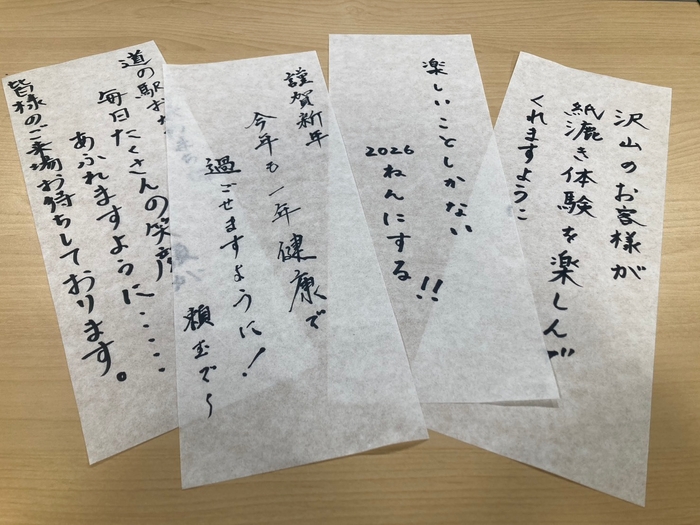 沢山のお客様が
紙漉き体験を楽しんで
くれますように
楽しいことしかない
2026ねんにする!!
謹賀新年
今年も一年健康で
過ごせますように!
頼むで〜
道の駅
毎日たくさんの笑顔
あふれますように・・・・・
皆様のご来場お待ちしております。